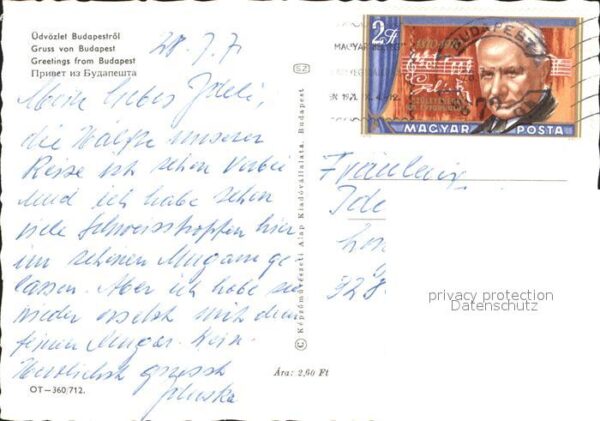 Üdvözlet Budapestről
Gruss von Budapest
Greetings from Budapest
Привет из Будапешта
28.7.71
Mein lieber Ideli,
die Hälfte unserer
Reise ist schon vorbei
und ich habe schon
viele Schweisstropfen hier
im schönen Ungarn ge-
lassen. Aber ich habe sie
wieder ersetzt mit dem
feinen Ungar. Wein.
Herzlichst grüsst
OT—360/712.
SZ
© Képzőművészeti Alap Kiadóvállalata, Budapest
Ára: 2,60 Ft
BUDAPEST
2 Ft
1870-1970
MAGYAR POSTA
Fräulein
privacy protection
Datenschutz